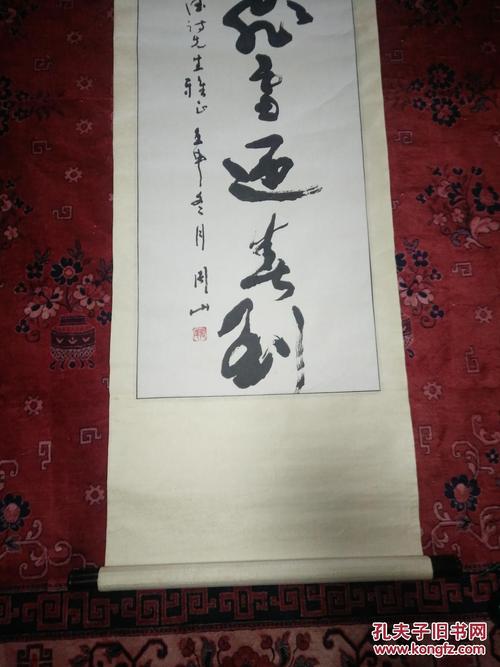 飛雪迎春到
先生雅正 壬申冬月 周山
孔夫子旧书网
www.kongfz.com